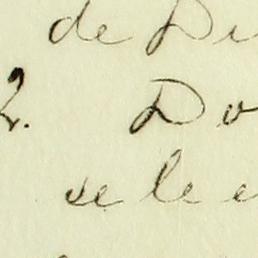 de Di
2. Do
se le e